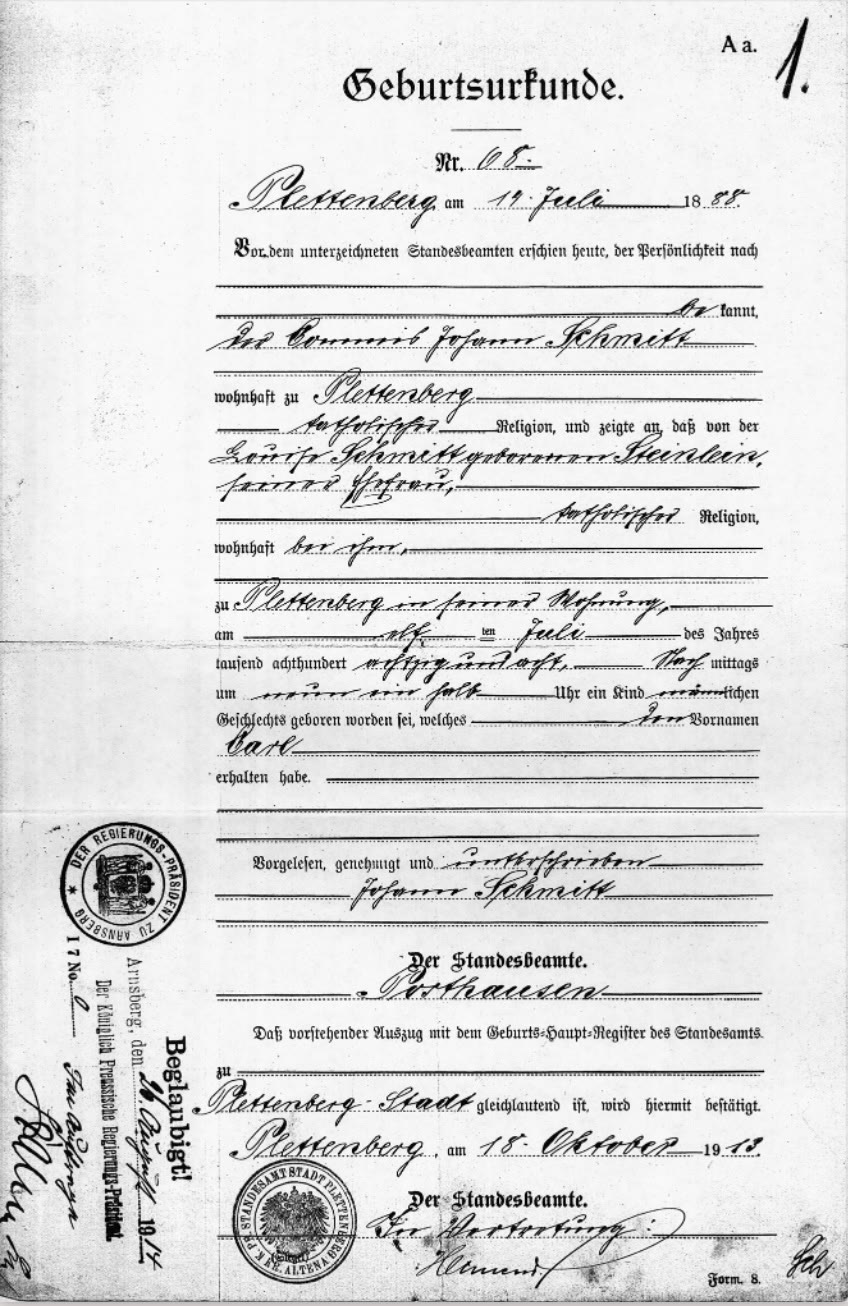 A a.
1.
Geburtsurkunde.
Nr. 68.
Plettenberg am 14. Juli 1888.
Vor dem unterzeichneten Standesbeamten erschien heute, der Persönlichkeit nach
be kannt,
der Commis Johann Schmitt
wohnhaft zu Plettenberg
katholischer Religion, und zeigte an, daß von der
Louise Schmitt geborenen Steinlein,
seiner Ehefrau,
katholischer Religion,
wohnhaft bei ihm,
zu Plettenberg in seiner Wohnung,
am elf ten Juli des Jahres
tausend achthundert achtzig und acht, Nach mittags
um neun ein halb Uhr ein Kind männlichen
Geschlechts geboren worden sei, welches den Vornamen
Carl
erhalten habe.
Vorgelesen, genehmigt und unterschrieben
Johann Schmitt
Der Standesbeamte.
Posthausen
Daß vorstehender Auszug mit dem Geburts-Haupt-Register des Standesamts
zu
Plettenberg-Stadt gleichlautend ist, wird hiermit bestätigt.
Plettenberg, am 18. Oktober 1913.
Der Standesbeamte.
In Vertretung:
Form. 8.
Sch
K. PR. STANDESAMT STADT PLETTENBERG KR. ALTENA
DER REGIERUNGS-PRÄSIDENT ZU ARNSBERG
Beglaubigt!
Arnsberg, den 26 August 1914
Der Königlich Preussische Regierungs-Präsident.
I 7 No. 0
Im Auftrage